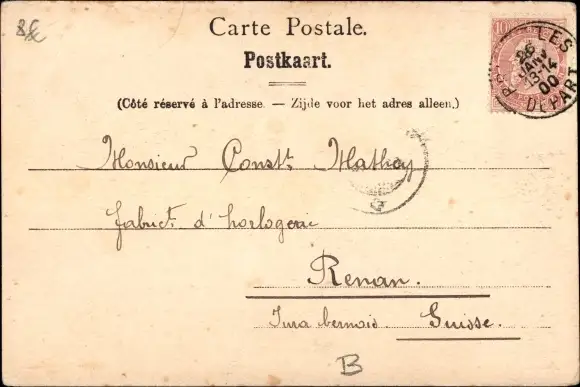 8€
Carte Postale.
Postkaart.
(Côté réservé à l'adresse. — Zijde voor het adres alleen.)
10
LES
26
JANV
13-14
00
DEPART
Monsieur Constt. Mathey
fabrict. d'horlogerie
Renan.
Jura bernois. Suisse.
B